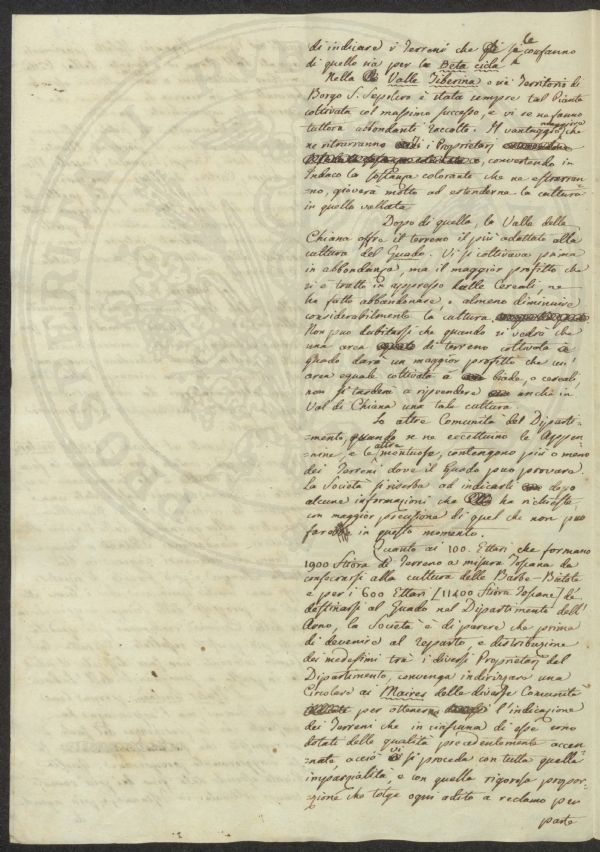 di indicare i Terreni che se le confanno
di quello sia per la Beta cicla
Nella Valle Tiberina o sia Territorio di
Borgo S. Sepolcro è stata sempre tal Pianta
coltivata col massimo successo, e vi se ne fanno
tuttora abbondanti raccolte. Il vantaggio maggiore che
ne ritrarranno i Proprietarj
convertendo in
Indaco la sostanza colorante che ne estrarran=
=no, gioverà molto ad estenderne la cultura
in quella vallata.
Dopo di quella, la Valle della
Chiana offre il terreno il più adattato alla
cultura del Guado. Vi si coltivava prima
in abbondanza, ma il maggior profitto che
si è tratto in appresso dalle Cereali, ne
ha fatto abbandonare, o almeno diminuire
considerabilmente la cultura
Non può dubitarsi che quando si vedrà che
una area di terreno coltivata a
guado darà un maggior profitto che un'
area eguale coltivata a biade, o cereali,
non si tarderà a riprendere anche in
Val di Chiana una tale cultura.
Le altre Comunità del Diparti=
=mento, quando se ne eccettuino le Appen=
=nine, e le altre montuose, contengono più o meno
dei Terreni dove il Guado può provare.
La Società si riserba ad indicarli dopo
alcune informazioni che ha richieste,
con maggior precisione di quel che non può
fare in questo momento.
Quanto ai 100. Ettari che formano
1900 Stiora di Terreno a misura Toscana da
consecrarsi alla cultura delle Barbe-Bietole
e per i 600 Ettari [11400 Stiora Toscane] de=
destinarsi al Guado nel Dipartimento dell'
Arno, la Società è di parere che prima
di devenire al reparto, e distribuzione
dei medesimi tra i diversi Proprietarj del
Dipartimento, convenga indirizzare una
Circolare ai Maires delle diverse Comunità
per ottenerne l'indicazione
dei Terreni che in ciascuna di esse sono
dotati delle qualità precedentemente accen=
=nate, acciò vi si proceda con tutta quella
imparzialità, e con quella rigorosa propor=
=zione che tolga ogni adito a reclamo per
parte